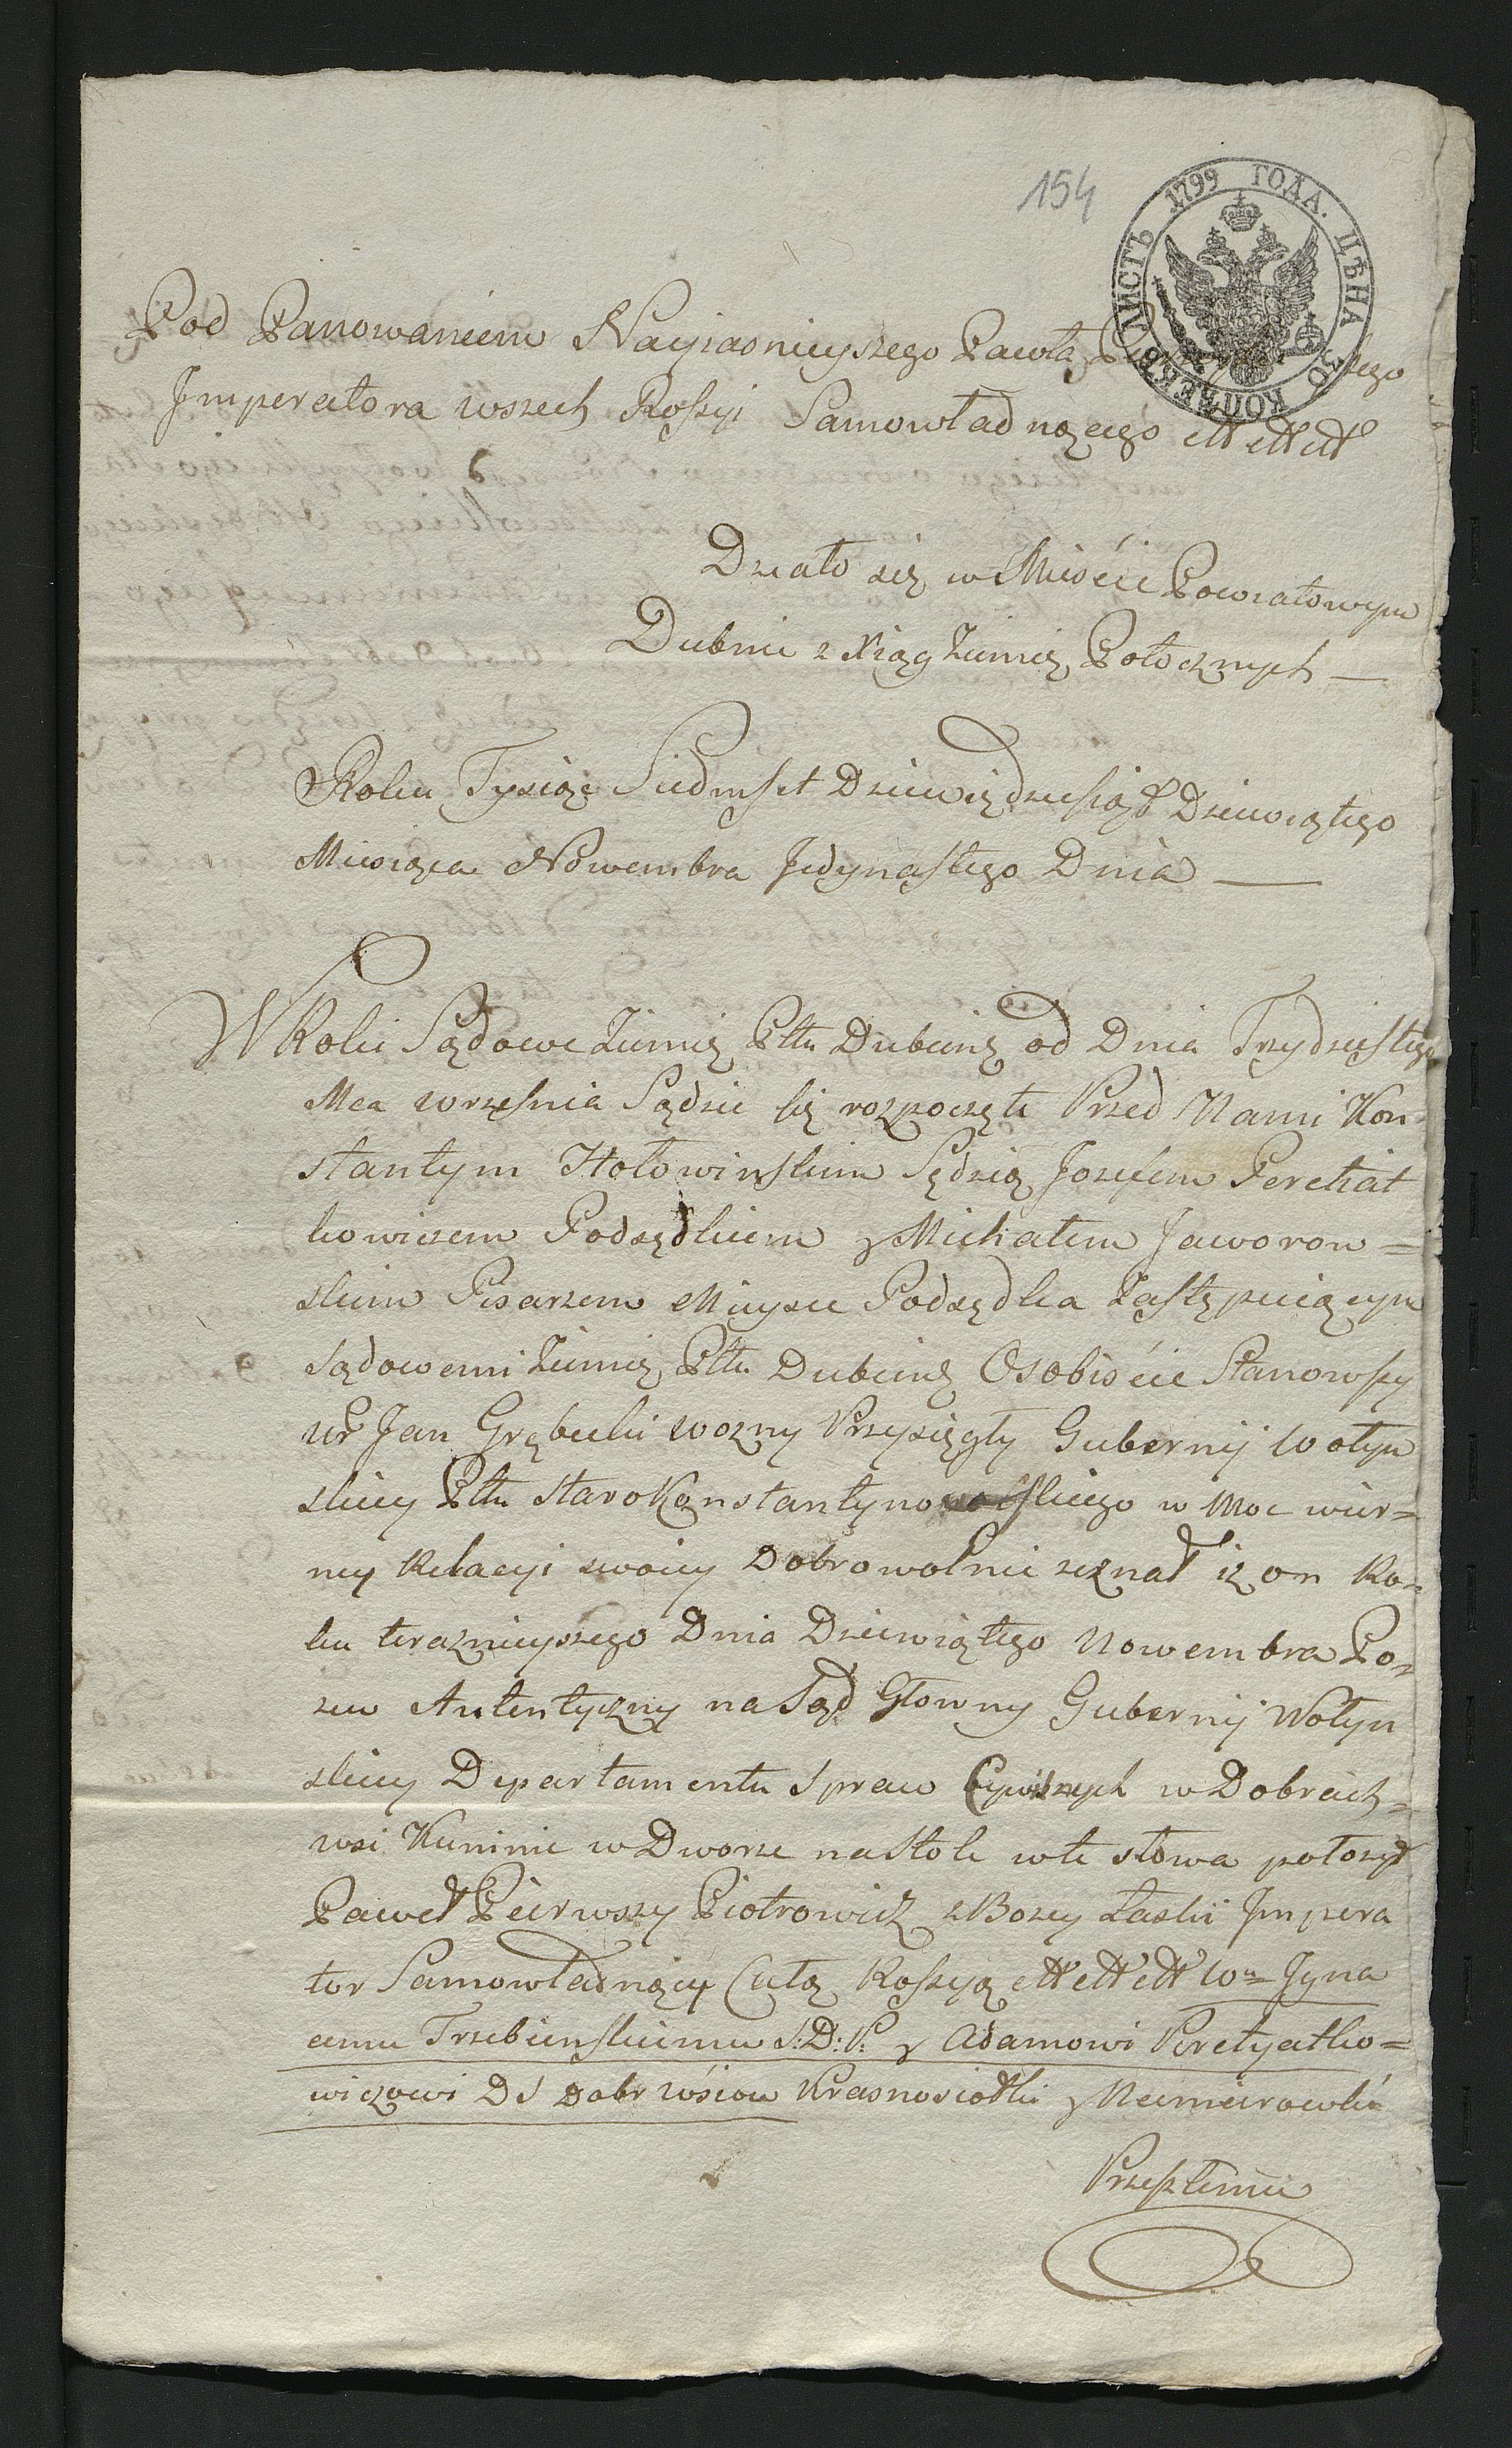 154
ЛИСТЪ 1799 ГОДА. ЦѢНА 30 КОПѢЕКЪ
Pod Panowaniem Nayiasnieyszego Pawła
Imperatora wszech Rossyi Samowładnącego ett ett ett
Działo się w Mieście Powiatowym
Dubnie z Xiąg Ziemię Potocznych —
Roku Tysiąc Siedmset Dziewiędziesiąt Dziewiątego
Miesiąca Nowembra Jedynastego Dnia —
W Roki Sądowe Ziemię Pttu Dubienę od Dnia Trzydziestego
Mca września Sądzić się rozpoczęte Przed Nami Kon-
stantym Hołowinskim Sędzią Jozefem Peretiat
kowiczem Podsędkiem y Michałem Jaworow=
skim Pisarzem Mieysce Podsędka Zastępuiącym
Sądowemi Ziemię Pttu Dubienę Osobiście Stanowszy
Ur Jan Grębecki wozny Przysięgły Gubernij Wołyn
skiey Pttu Starokonstantynowskiego w Moc wier=
ney Relacyi swoiey Dobrowolnie zeznał iz on Ro=
ku teraznieyszego Dnia Dziewiątego Nowembra Po=
zew Autentyczny na Sąd Głowny Gubernij Wołyn
skiey Departamentu Spraw Cywilnych w Dobrach=
wsi Kuninie w Dworze na Stole w te słowa położył
Paweł Pierwszy Piotrowicz z Bozey Łaski Impera
tor Samowładnący Całą Rossyą ett ett ett Wu= Jgna
cemu Trzebienskiemu S: D: P: y Adamowi Peretyatko=
wiczowi DS Dobr Wśiow Krasnosiołki y Niemierowki=
Przeszłemu